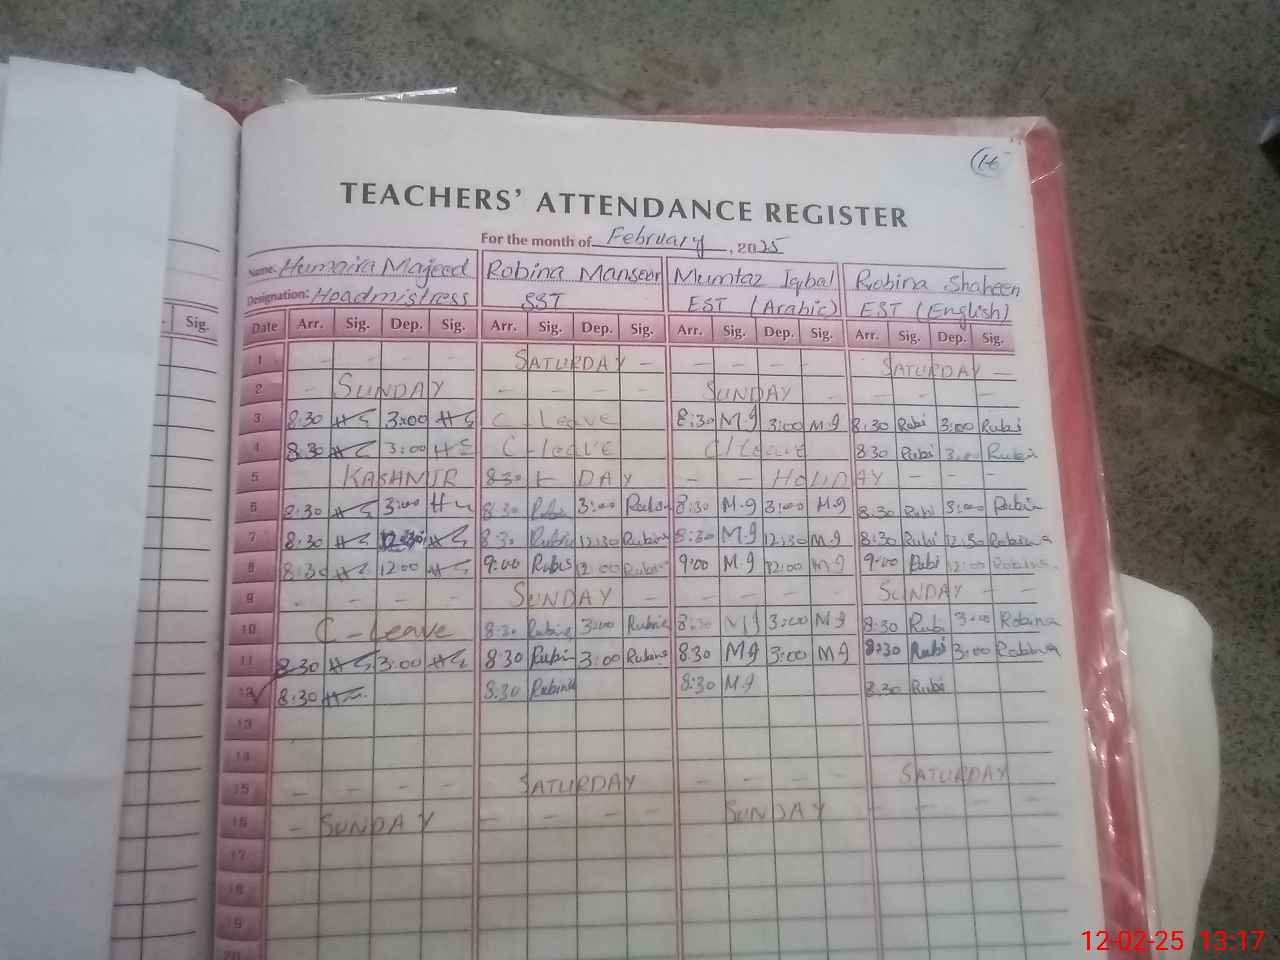 16
TEACHERS' ATTENDANCE REGISTER
For the month of February, 2025
Name: Humaira Majeed Robina Mansoor Mumtaz Iqbal Robina Shaheen
Designation: Headmistress SST EST (Arabic) EST (English)
Sig. Date Arr. Sig. Dep. Sig. Arr. Sig. Dep. Sig. Arr. Sig. Dep. Sig. Arr. Sig. Dep. Sig.
1 - - - - SATURDAY - - - - - SATURDAY -
2 - SUNDAY - - - - SUNDAY - - - - -
3 8:30 3:00 C Leave 8:30 M.g 3:00 M.g 8:30 Rubi 3:00 Rubi
4 8:30 3:00 C-leave C/Leave 8:30 Rubi 3:00 Rubi
5 KASHMIR 8:30 DAY - - HOLIDAY - - -
6 8:30 3:00 8:30 3:00 8:30 M.g 3:00 M.g 8:30 Rubi 3:00
7 8:30 12:30 8:30 12:30 Rubina 8:30 M.g 12:30 M.g 8:30 Rubi 12:30 Robina
8 8:30 12:00 9:00 Rubi 12:00 Rubina 9:00 M.g 12:00 M.g 9:00 Rubi 12:00 Robina
9 - - - - SUNDAY - - - - - SUNDAY - -
10 C-Leave 8:30 Rubina 3:00 Rubina 8:30 3:00 M.g 8:30 Rubi 3:00 Robina
11 8:30 3:00 8:30 Rubi 3:00 Rubina 8:30 M.g 3:00 M.g 8:30 Rubi 3:00 Robina
12 8:30 8:30 Rubina 8:30 M.g 8:30 Rubi
13
14
15 - - - - SATURDAY - - - - SATURDAY
16 - SUNDAY - - - - SUNDAY - - - -
17
18
19
20
12-02-25 13:17